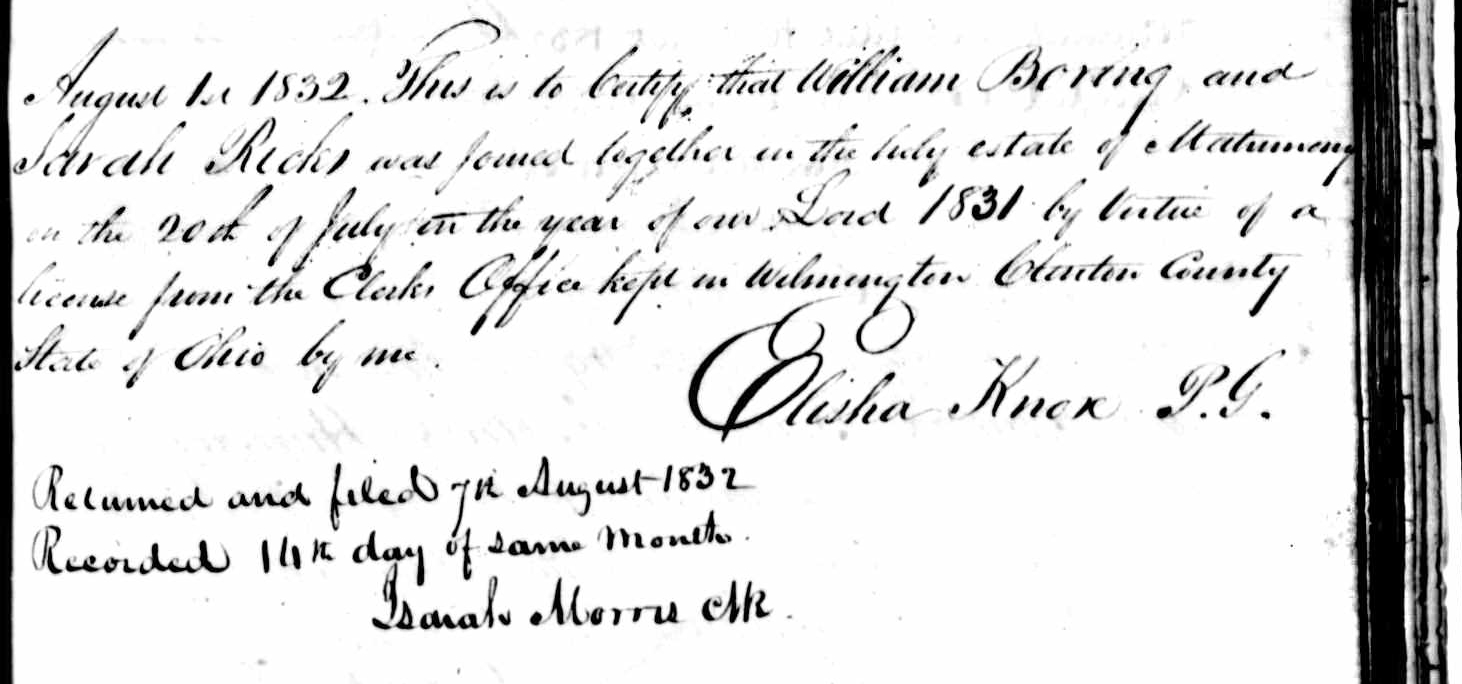 August 1st 1832. This is to Certify that William Boring and
Sarah Ricks was joined together in the holy estate of Matrimony
on the 20th of July in the year of our Lord 1831 by virtue of a
license from the Clerks Office kept in Wilmington Clinton County
State of Ohio by me.
Elisha Knox P.G.
Returned and filed 7th August 1832
Recorded 14th day of same Month.
Isaiah Morris Clk.